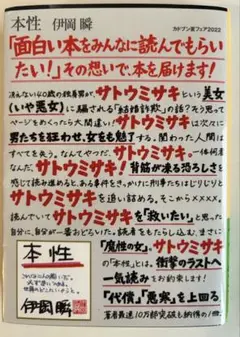 本性 伊岡 瞬
カドブン夏フェア2022
「面白い本をみんなに読んでもらい
たい!」その想いで、本を届けます!
冴えない40歳の独身男が、サトウミサキという美女
(いや悪女)に騙される「結婚詐欺」の話?そう思って
ページをめくったら大間違い!サトウミサキは次々に
男たちを狂わせ、女をも魅了する。関わった人間は
すべてを失う。なんてやつだ、サトウミサキ。一体何者
なんだ、サトウミサキ!背筋が凍る恐ろしさを
感じて読み進めると、ある事件をきっかけに刑事たちはじりじりと
サトウミサキを追い詰める。そこから××××。
読んでいてサトウミサキを「救いたい」と思った
自分に、自分が一番おどろいた。読者をもたらし込む、まさに
「魔性の女」。サトウミサキ
の「本性」とは。衝撃のラストへ
一気読みをお約束します!
「代償」「悪寒」を上回る
著者最速10万部突破も納得の1冊。
本性
伊岡瞬